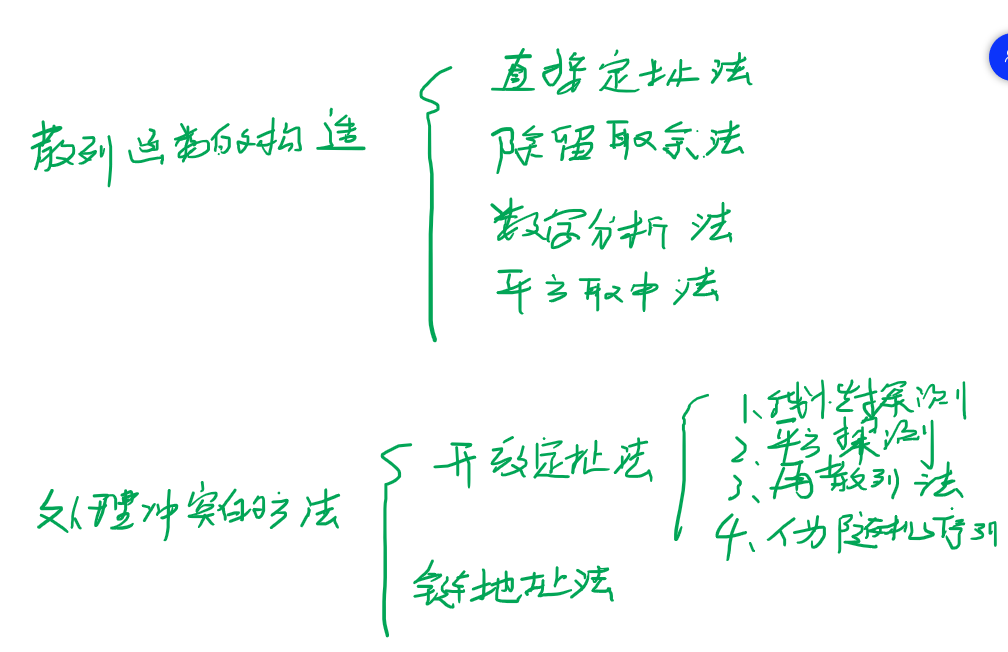 散列函数的构造
直接定址法
除留取余法
数字分析法
平方取中法
处理冲突的方法
开放定址法
1、线性探测
2、平方探测
3、再散列法
4、伪随机序列
链地址法